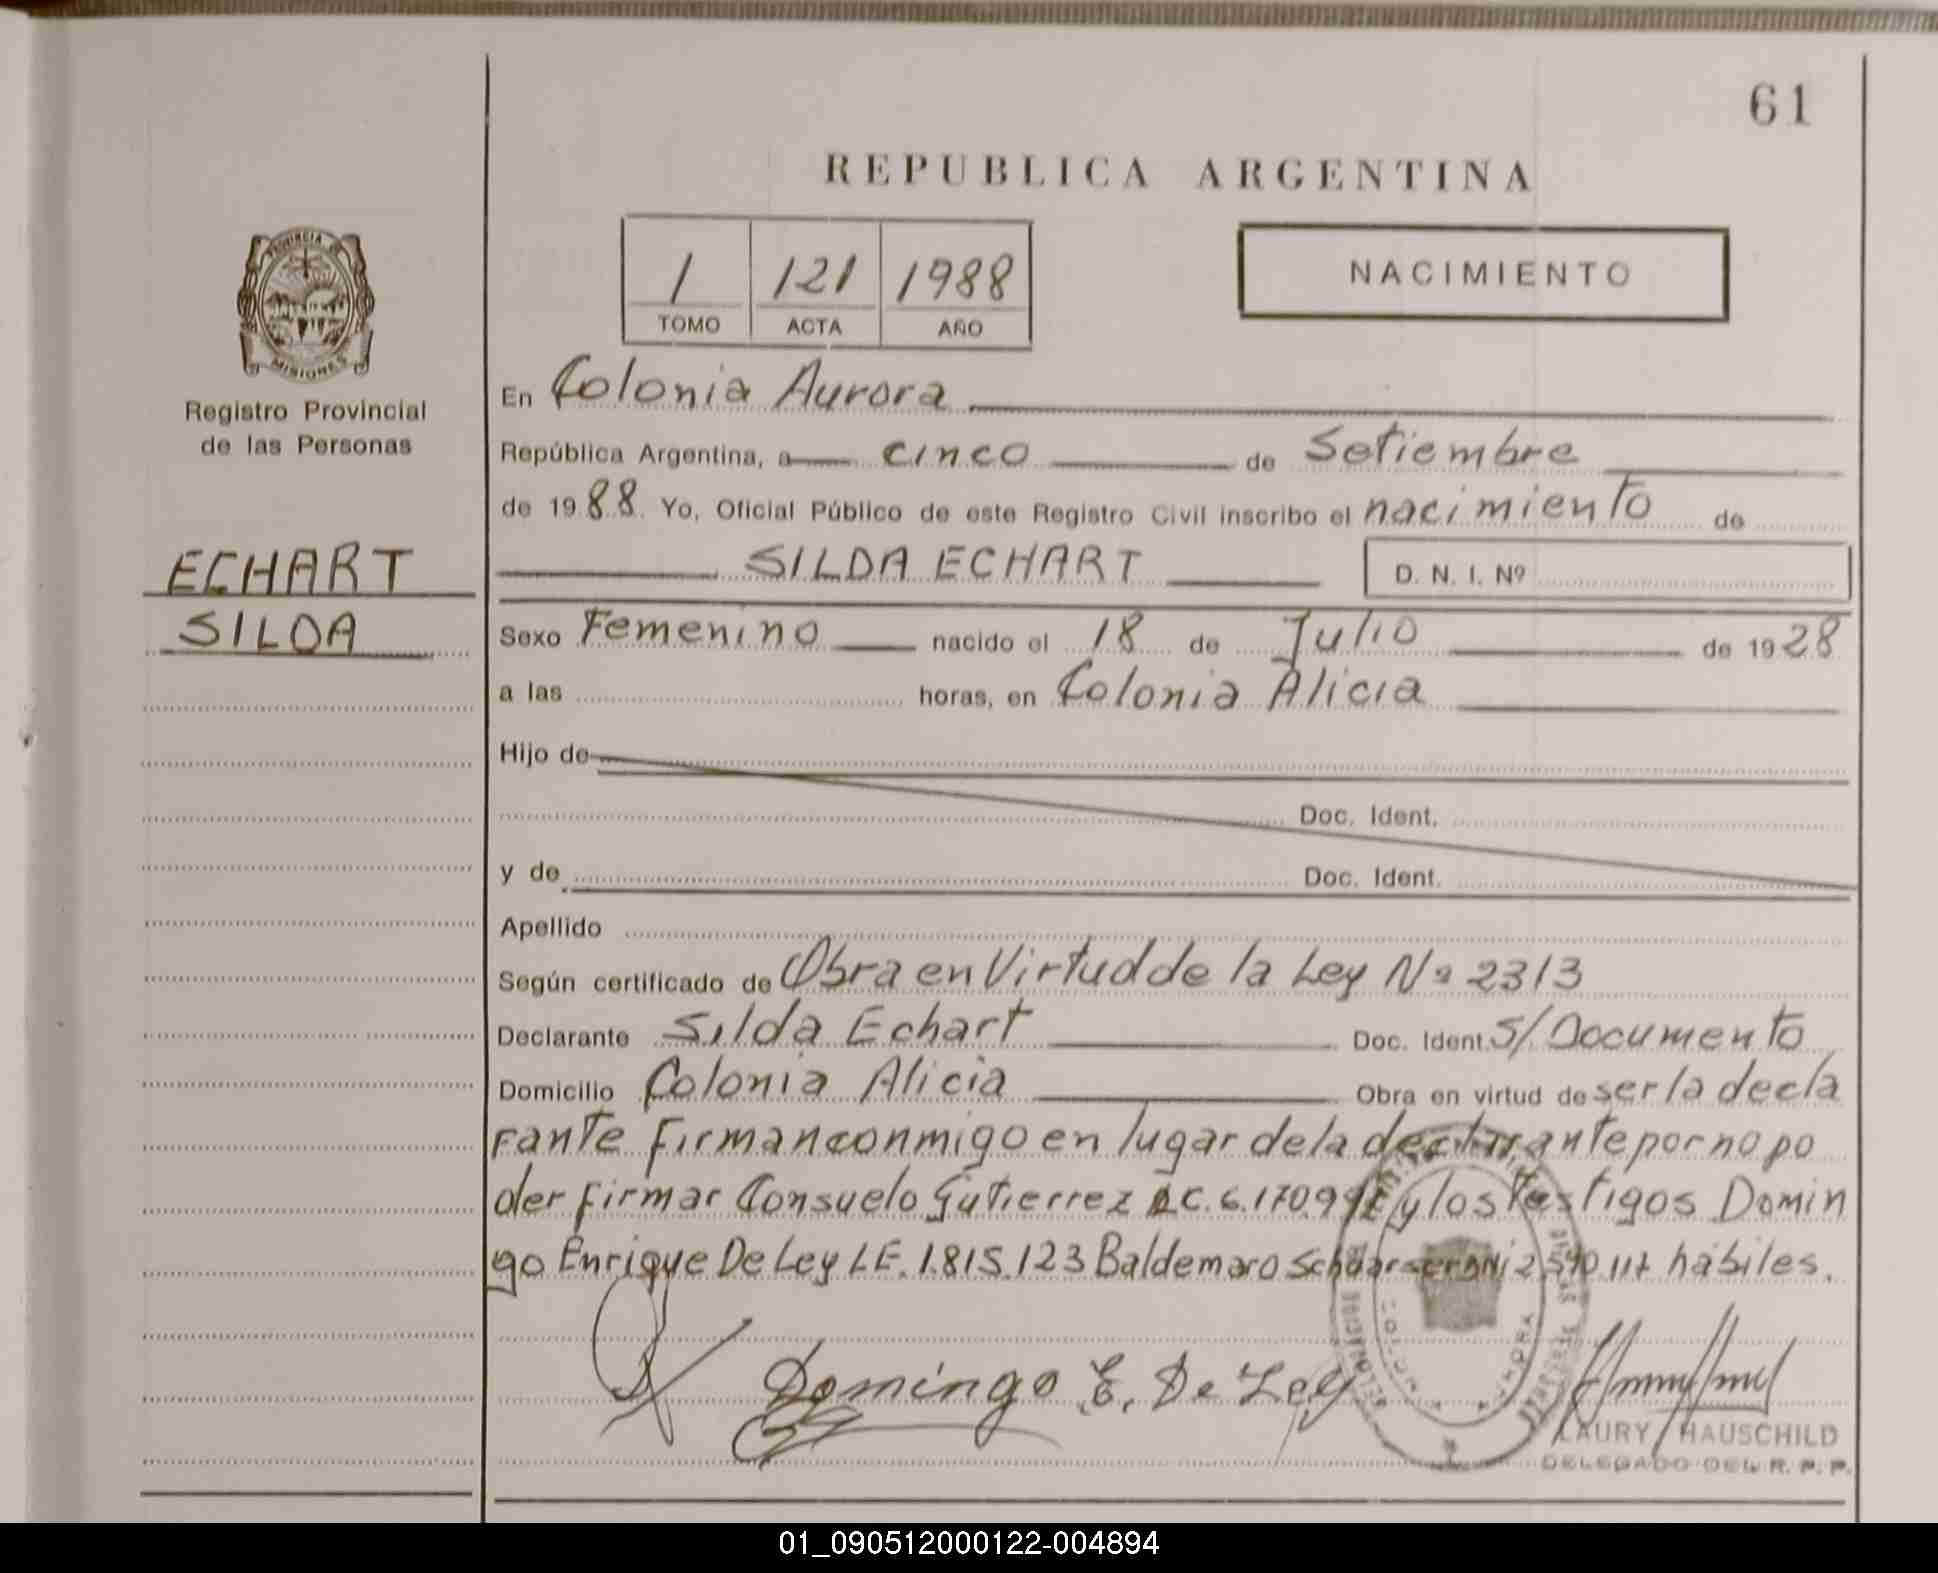 61
REPUBLICA ARGENTINA
1 121 1988
TOMO ACTA AÑO
NACIMIENTO
PROVINCIA DE
MISIONES
Registro Provincial
de las Personas
ECHART
SILDA
En Colonia Aurora
República Argentina, a cinco de Setiembre
de 1988 Yo, Oficial Público de este Registro Civil inscribo el nacimiento de
SILDA ECHART D. N. I. Nº
Sexo Femenino nacido el 18 de Julio de 1928
a las horas, en Colonia Alicia
Hijo de
Doc. Ident.
y de Doc. Ident.
Apellido
Según certificado de Obra en Virtud de la Ley Nº 2313
Declarante Silda Echart Doc. Ident. S/Documento
Domicilio Colonia Alicia Obra en virtud de ser la decla
rante Firman conmigo en lugar de la declarante por no po
der Firmar Consuelo Gutierrez y los Testigos Domin
go Enrique De Ley L.E. 1.815.123 Baldemaro hábiles.
Domingo E. De Ley
LAURY HAUSCHILD
DELEGADO DEL R. P. P.
01_090512000122-004894